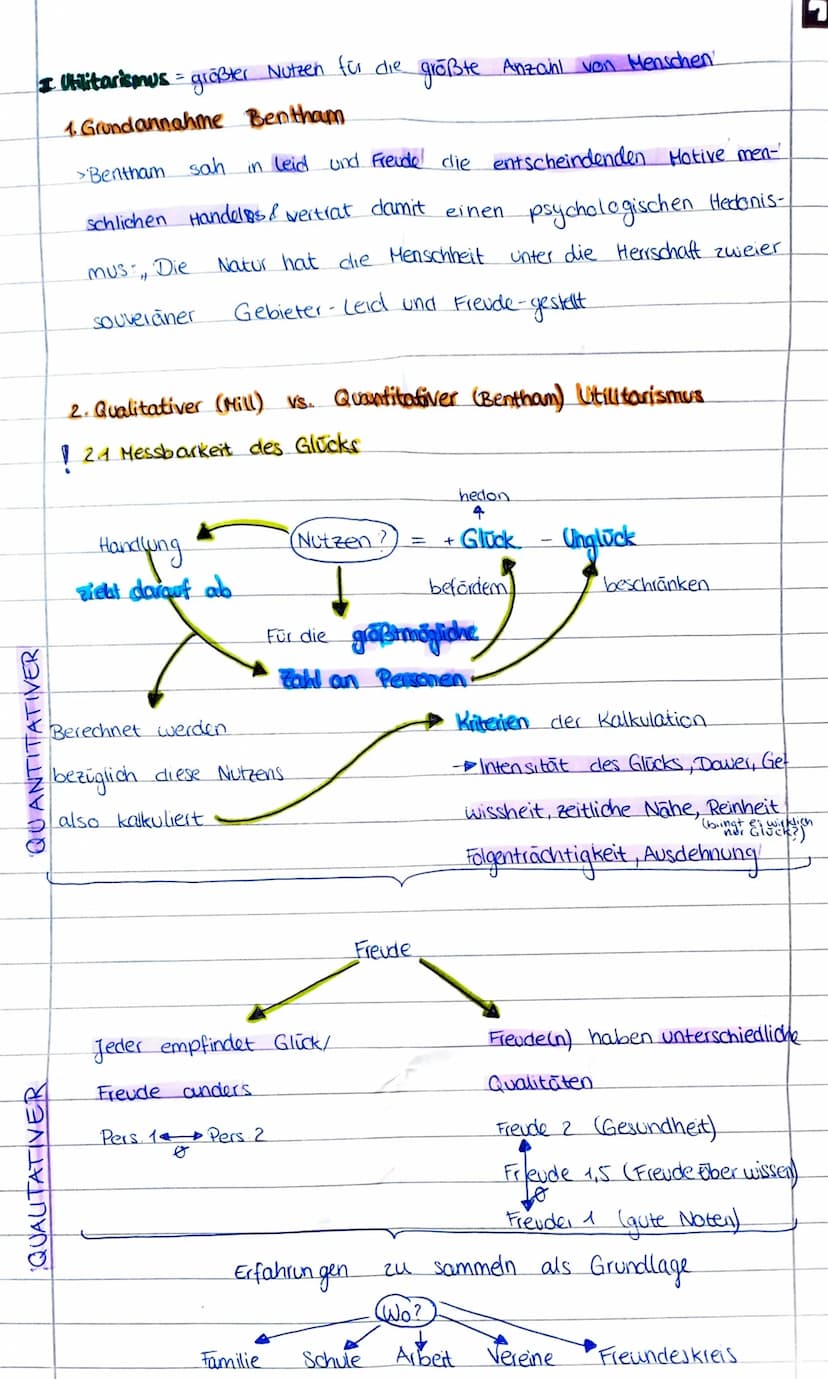 I Utilitarismus = größter Nutzen für die größte Anzahl von Menschen
1. Grundannahme Bentham
> Bentham sah in Leid und Freude die entscheindenden Motive men-
schlichen Handelns & vertrat damit einen psychologischen Hedonis-
mus: „Die Natur hat die Menschheit unter die Herrschaft zweier
souveräner Gebieter - Leid und Freude - gestellt
2. Qualitativer (Mill) vs. Quantitativer (Bentham) Utilitarismus
! 2.1 Messbarkeit des Glücks
hedon
Handlung Nutzen? = + Glück - Unglück
zielt darauf ab befördern beschränken
Für die größtmögliche
Zahl an Personen
QUANTITATIVER
Berechnet werden Kriterien der Kalkulation
bezüglich diese Nutzens → Intensität des Glücks, Dauer, Ge
also kalkuliert wissheit, zeitliche Nähe, Reinheit
(bringt es wirklich
nur Glück?)
Folgenträchtigkeit, Ausdehnung
Freude
Jeder empfindet Glück/ Freude(n) haben unterschiedliche
Freude anders Qualitäten
Pers. 1 ↔ Pers 2 Freude 2 (Gesundheit)
ø
Freude 1,5 (Freude über wissen)
ø
Freude 1 (gute Noten)
QUALITATIVER
Erfahrungen zu sammeln als Grundlage
Wo?
Familie Schule Arbeit Vereine Freundeskreis